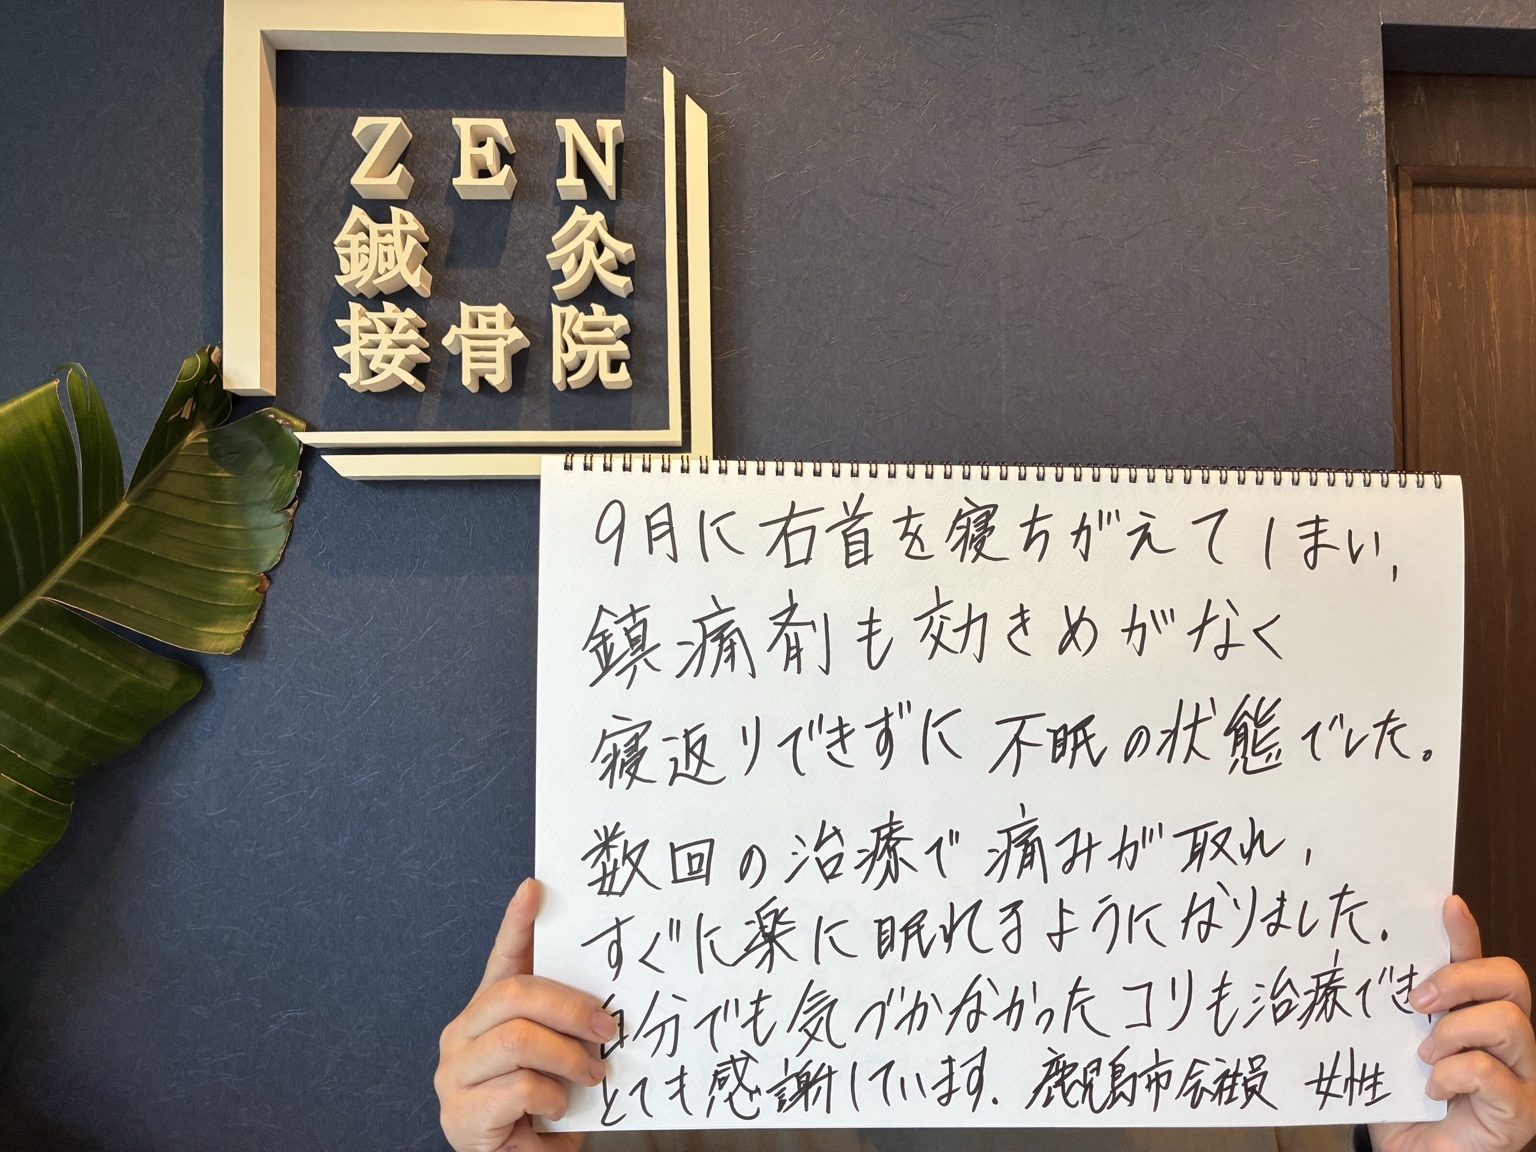 ZEN
鍼灸
接骨院
9月に右首を寝ちがえてしまい、
鎮痛剤も効きめがなく
寝返りできずに不眠の状態でした。
数回の治療で痛みが取れ、
すぐに楽に眠れるようになりました。
自分でも気づかなかったコリも治療でき、
とても感謝しています。鹿児島市会社員 女性